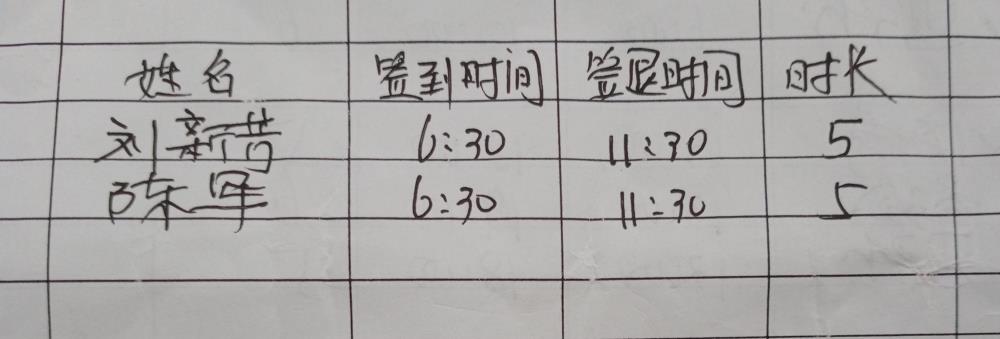 姓名 签到时间 签退时间 时长
刘新苗 6:30 11:30 5
陈军 6:30 11:30 5